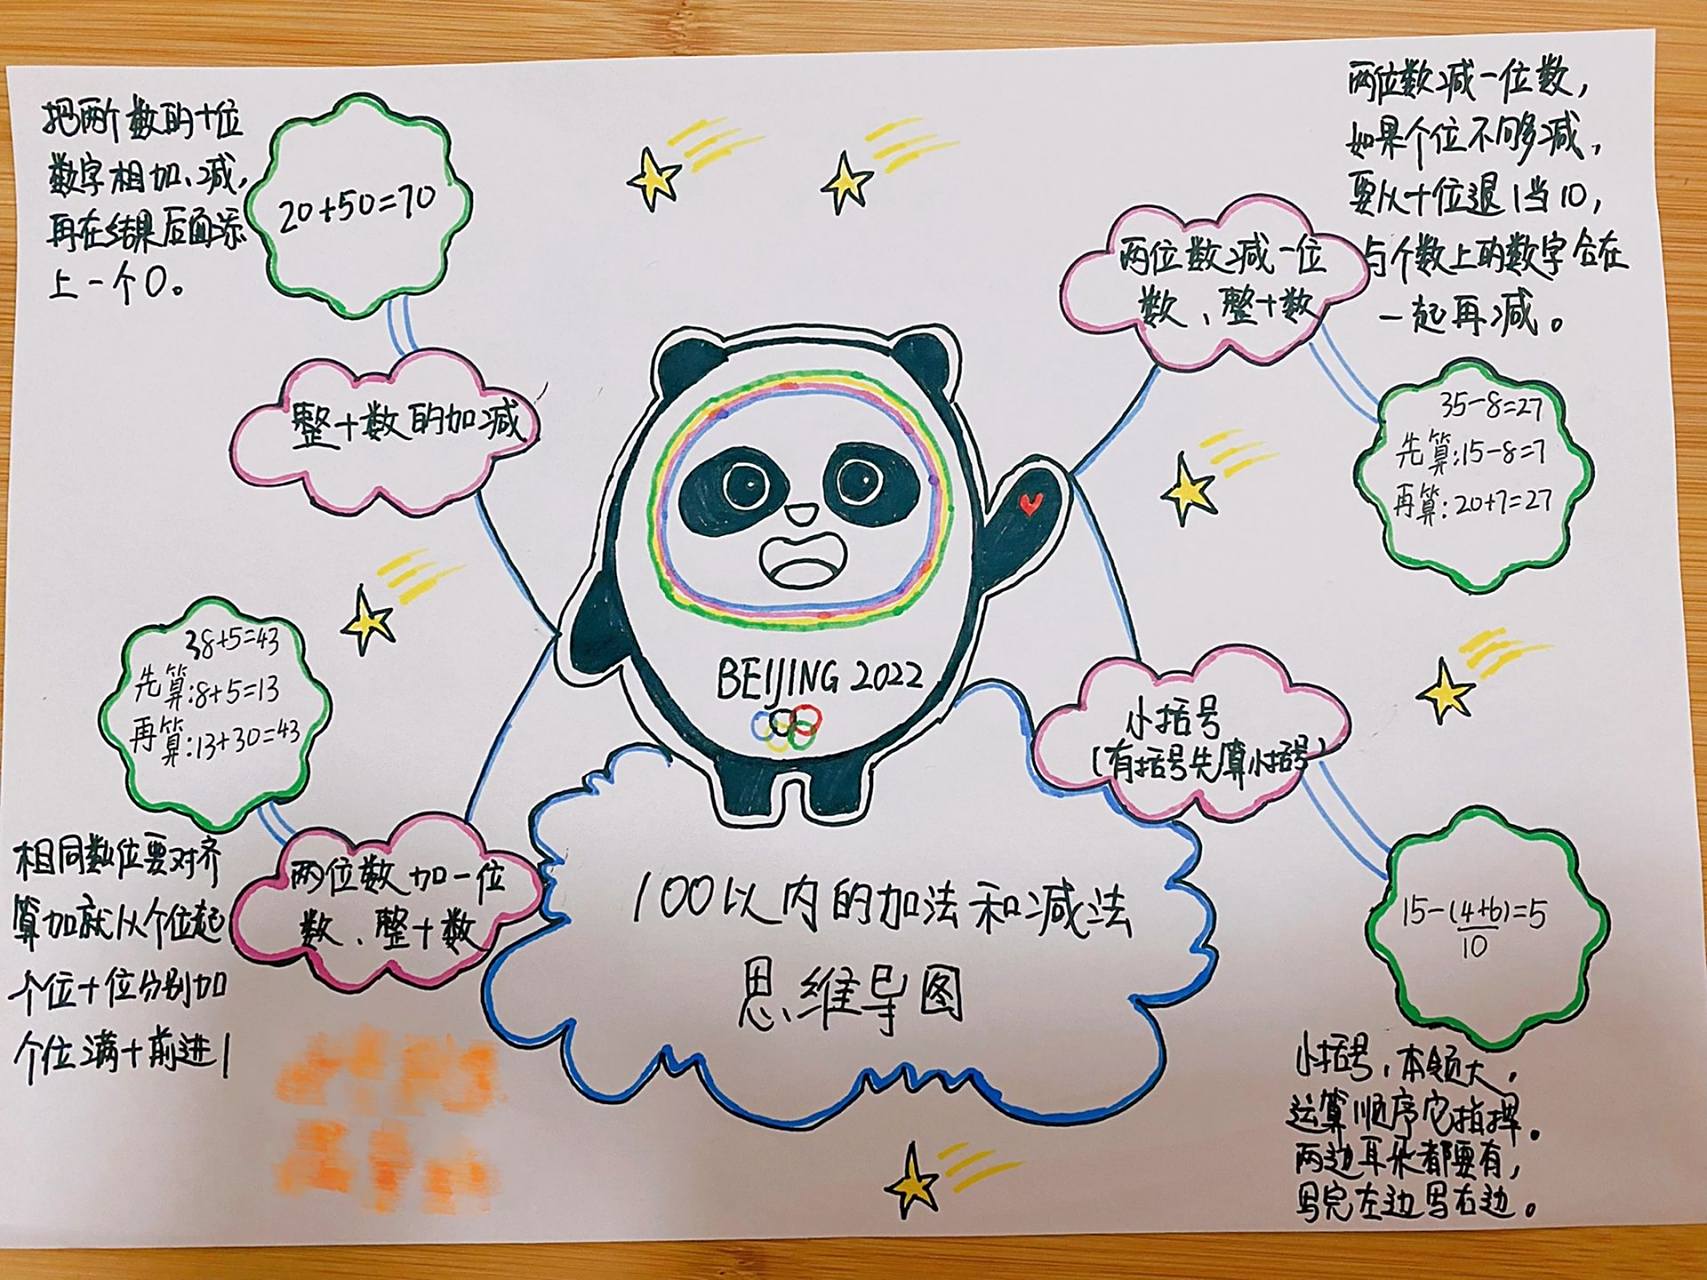 把两个数的十位
数字相加、减,
再在结果后面添
上一个0。
20+50=70
整十数的加减
38+5=43
先算:8+5=13
再算:13+30=43
两位数加一位
数、整十数
相同数位要对齐
算加就从个位起
个位十位分别加
个位满十前进1
BEIJING 2022
100以内的加法和减法
思维导图
两位数减一位数,
如果个位不够减,
要从十位退1当10,
与个数上的数字合在
一起再减。
两位数减一位
数、整十数
35-8=27
先算:15-8=7
再算:20+7=27
小括号
(有括号先算小括号)
15-(4+6)=5
10
小括号,本领大,
运算顺序它指挥。
两边耳朵都要有,
写完左边写右边。